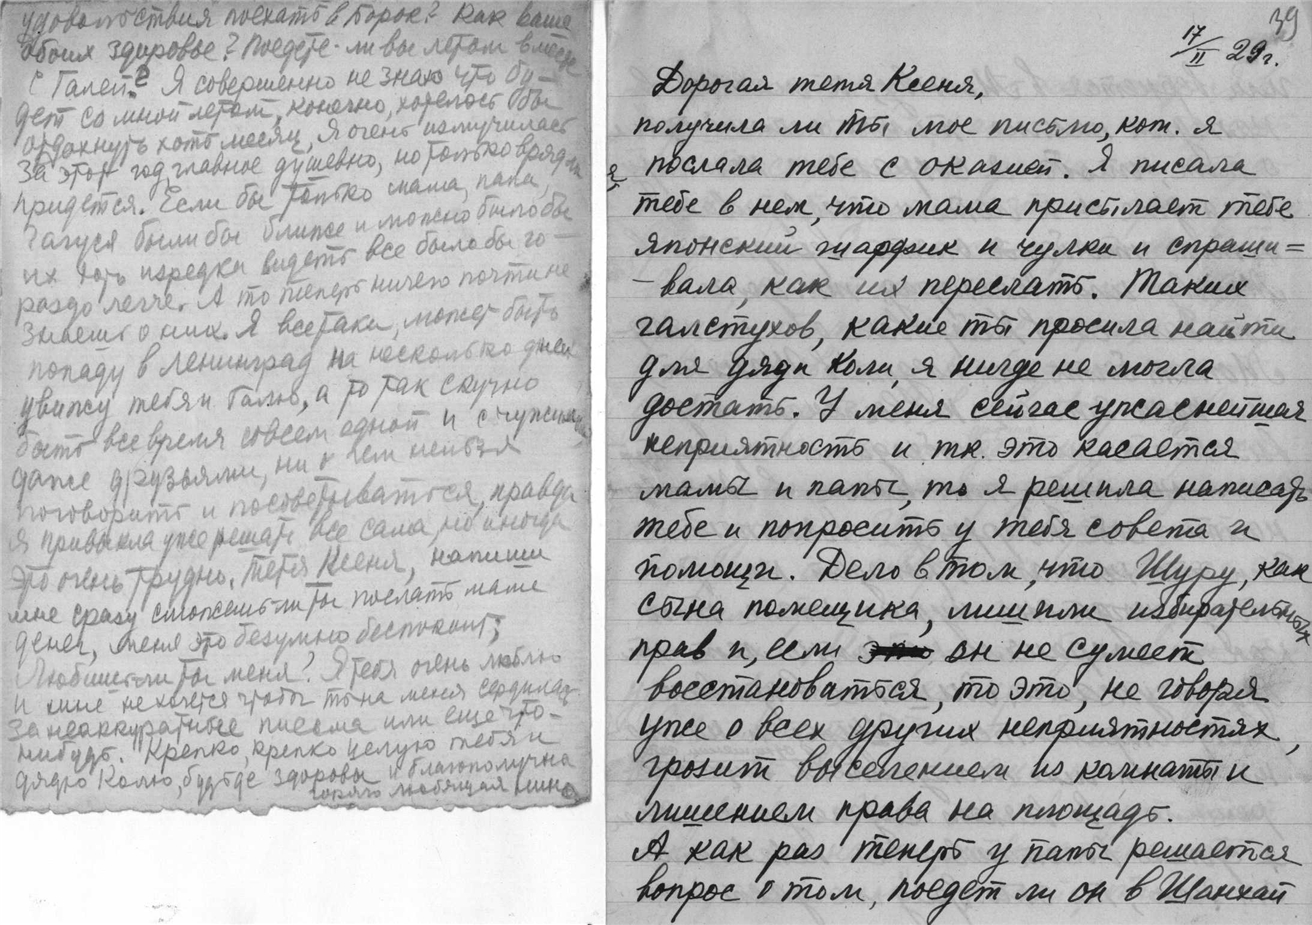 удовольствия поехать в Борок? Как ваше
обоих здоровье? Поедете-ли вы летом вместе
с Галей? Я совершенно не знаю что бу-
дет со мной летом, конечно, хотелось бы
отдохнуть хоть месяц, я очень измучилась
за этот год, главное душевно, но только врядли
придется. Если бы только мама, папа,
Тагуся были бы ближе и можно было бы
их хоть изредка видеть все было бы го-
раздо легче. А то теперь ничего почти не
знаешь о них. Я всетаки, может быть
попаду в Ленинград на несколько дней
увижу тебя и Галю, а то так скучно
быть все время совсем одной и с чужими
даже друзьями, ни о чем нельзя
поговорить и посоветываться, правда
я привыкла уже решать все сама, но иногда
это очень трудно. Тетя Ксеня, напиши
мне сразу сможешь ли ты послать маме
денег, меня это безумно беспокоит;
Любишь ли ты меня? Я тебя очень люблю
и мне не хочется чтобы ты на меня сердилась
за неаккуратные письма или еще что-
нибудь. Крепко, крепко целую тебя и
дядю Колю, будьте здоровы и благополучны
горячо любящая Нина
39
17/II 29г.
Дорогая тетя Ксеня,
получила ли ты мое письмо, кот. я
послала тебе с оказией. Я писала
тебе в нем, что мама присылает тебе
японский шарфик и чулки и спраши=
-вала, как их переслать. Таких
галстухов, какие ты просила найти
для дяди Коли, я нигде не могла
достать. У меня сейчас ужаснейшая
неприятность и тк. это касается
мамы и папы, то я решила написать
тебе и попросить у тебя совета и
помощи. Дело в том, что Шуру, как
сына помещика, лишили избирательных
прав и, если он не сумеет
восстановиться, то это, не говоря
уже о всех других неприятностях,
грозит выселением из комнаты и
лишением права на площадь.
А как раз теперь у папы решается
вопрос о том, поедет ли он в Шанхай